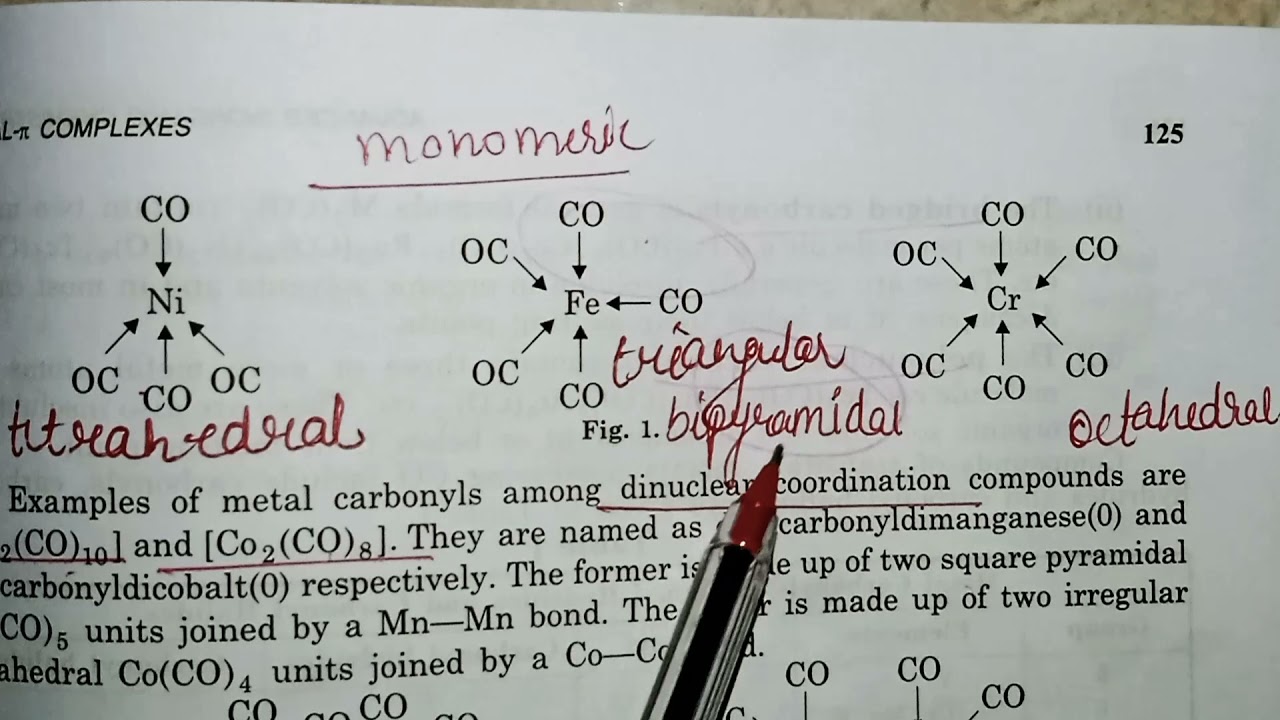 L-π COMPLEXES
monomeric
125
CO CO CO
OC OC CO
Ni Fe CO Cr
triangular
OC OC OC CO OC CO
CO CO
titrahedral Fig. 1. bipyramidal octahedral
Examples of metal carbonyls among dinuclear coordination compounds are
2(CO)10] and [Co2(CO)8]. They are named as carbonyldimanganese(0) and
carbonyldicobalt(0) respectively. The former is up of two square pyramidal
CO)5 units joined by a Mn—Mn bond. The is made up of two irregular
ahedral Co(CO)4 units joined by a Co—Co
CO CO CO CO CO